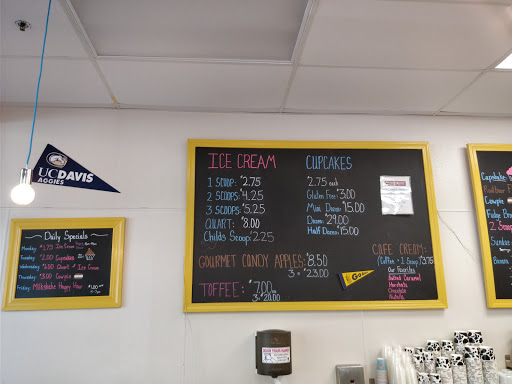 UCDAVIS
AGGIES
Daily Specials
Monday $1.75 Ice Cream
Tuesday $2.00 Cupcakes
Wednesday $7.00 Quart of Ice Cream
Thursday $3.00 Cowpie
Friday Milkshake Happy Hour $1.00
ICE CREAM
1 SCOOP: $2.75
2 SCOOPS: $4.25
3 SCOOPS: $5.25
QUART: $8.00
Childs Scoop: $2.25
CUPCAKES
$2.75 each
Gluten Free $3.00
Mini Dozen $15.00
Dozen $29.00
Half Dozen $15.00
GOURMET CANDY APPLES: $8.50
3 = $23.00
TOFFEE: $7.00
3 = $20.00
CAFE CREAM:
Coffee + 1 Scoop $3.75
Our Favorites
Salted Caramel
Horchata
Chocolate
Nutella
Cupcake
Cowpie
Fudge
2 Scoo
Sundae
Banana